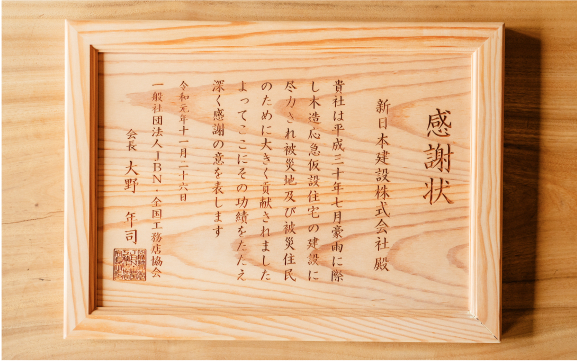 感謝状
新日本建設株式会社 殿
貴社は平成三十年七月豪雨に際
し木造応急仮設住宅の建設に
尽力され被災地及び被災住民
のために大きく貢献されました
よってここにその功績をたたえ
深く感謝の意を表します
令和元年十一月二十六日
一般社団法人JBN・全国工務店協会
会長 大野 年司